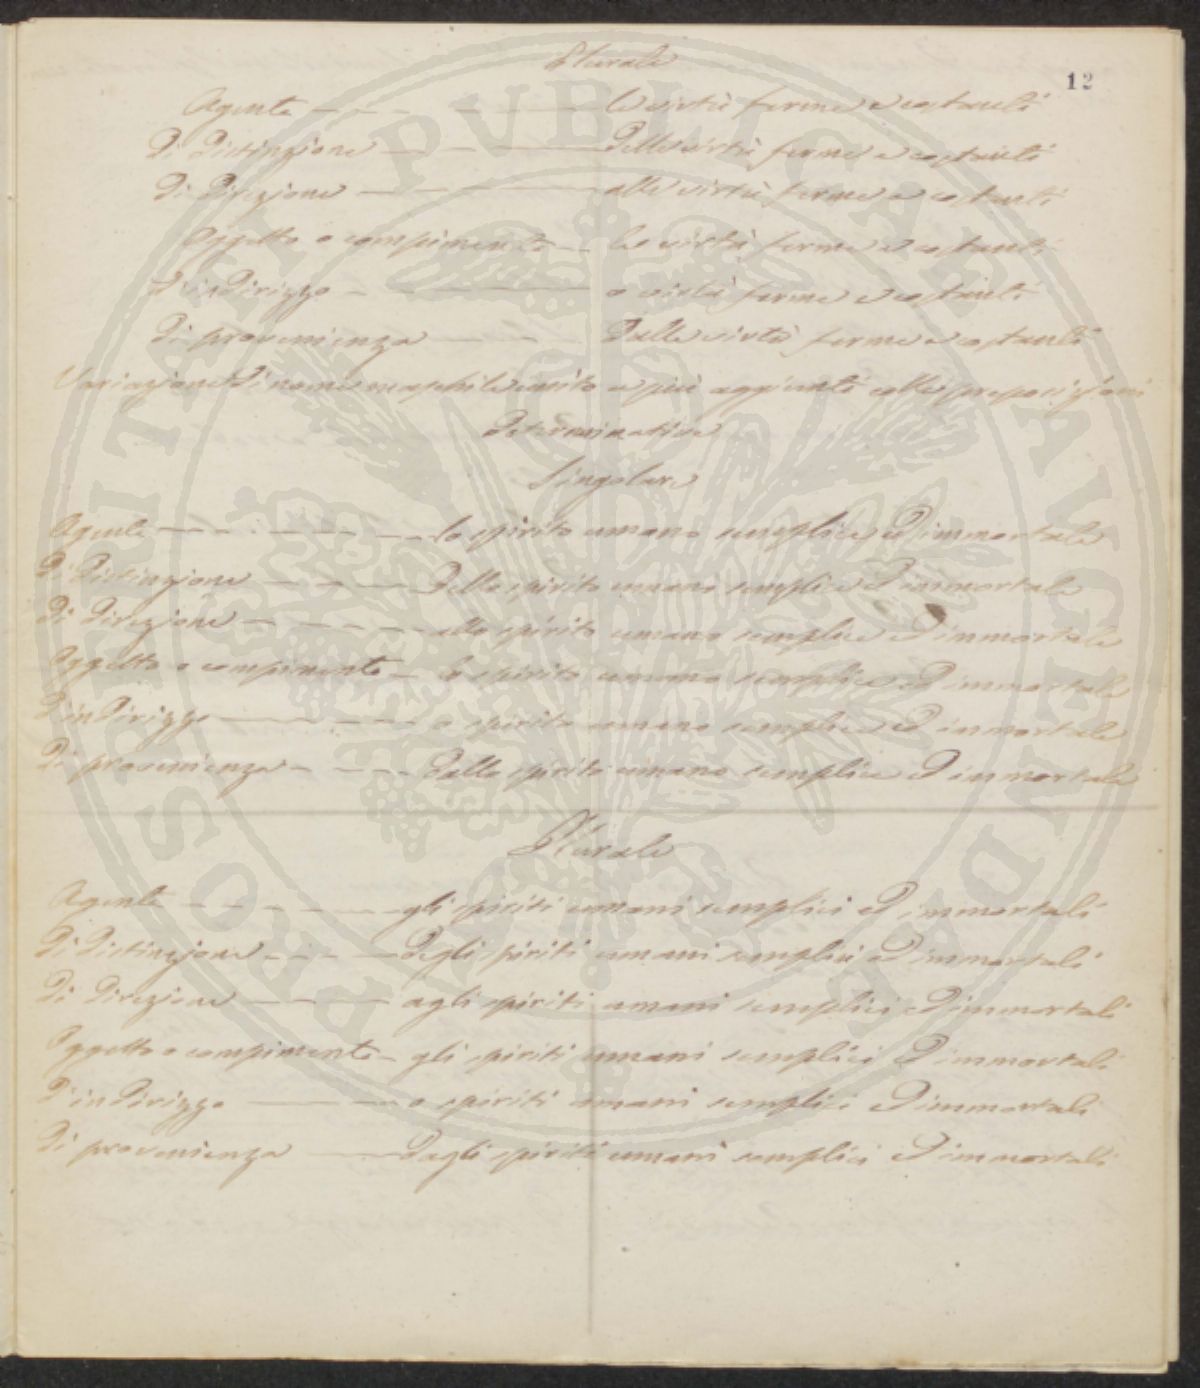 12
Plurale
Agente — — — — le virtù ferme e costanti
Di Distinzione — — — Delle virtù ferme e costanti
Di Direzione — — — alle virtù ferme e costanti
Oggetto o compimento — le virtù ferme e costanti
D'inDirizzo — — — o virtù ferme e costanti
Di provenienza — — — Dalle virtù ferme e costanti
Variazione Di nome maschile unito a più aggiunti colle preposizioni
Determinative
Singolare
Agente — — — — lo spirito umano semplice eD immortale
Di Distinzione — — — Dello spirito umano semplice eD immortale
Di Direzione — — — allo spirito umano semplice eD immortale
Oggetto o compimento — lo spirito umano semplice eD immortale
D'inDirizzo — — — o spirito umano semplice eD immortale
Di provenienza — — — Dallo spirito umano semplice eD immortale
Plurale
Agente — — — — gli spiriti umani semplici eD immortali
Di Distinzione — — — Degli spiriti umani semplici eD immortali
Di Direzione — — — agli spiriti umani semplici eD immortali
Oggetto o compimento — gli spiriti umani semplici eD immortali
D'inDirizzo — — o spiriti umani semplici eD immortali
Di provenienza — — Dagli spiriti umani semplici eD immortali
PROSPERITATI PVBLICAE AVGENDAE